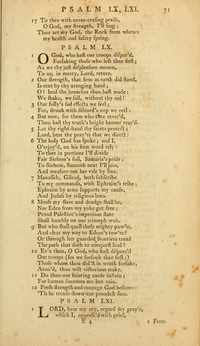 PSALM LX, LXI. 71
17 To thee with never-ceasing praise,
O God, my strength, I'll sing;
Thou art my God, the Rock from whence
my health and safety spring.
PSALM LX.
1 O God, who hast our troops dispers'd,
Forsaking those who left thee first;
As we thy just displeasure mourn,
To us, in mercy, Lord, return.
2 Our strength, that firm as earth did stand,
Is rent by thy avenging hand;
O! heal the breaches thou hast made:
We shake, we fall, without thy aid!
3 Our folly's sad effects we feel;
For, drunk with discord's cup we reel:
4 But now, for them who thee rever'd,
Thou hast the truth's bright banner rear'd.
5 Let thy right-hand thy saints protect;
Lord, hear the pray'rs that we direct!
6 The holy God has spoke; and I,
O'erjoy'd, on his firm word rely:
To thee in portions I'll divide
Fair Sichem's soil, Samaria's pride;
To Sichem, Succoth next I'll join,
And measure out her vale by line.
7 Manasseh, Gilead, both subscribe
To my commands, with Ephraim's tribe;
Ephraim by arms supports my cause,
And Judah by religious laws.
8 Moab my slave and drudge shall be,
Nor Edom from my yoke get free;
Proud Palestine's imperious state
Shall humbly on our triumph wait.
9 But who shall quell these mighty pow'rs,
And clear my way to Edom's tow'rs?
Or through her guarded frontiers tread
The path that doth to conquest lead?
10 Ev'n thou, O God, who hast dispers'd
Our troops (for we forsook thee first;)
Those whom thou didst in wrath forsake,
Aton'd, thou wilt victorious make.
11 Do thou our fainting cause sustain;
For human succours are but vain.
12 Fresh strength and courage God bestows:
'Tis he treads down our proudest foes.
PSALM LXI.
1 LORD, hear my cry, regard my pray'r,
which I, oppress'd with grief,
2 From